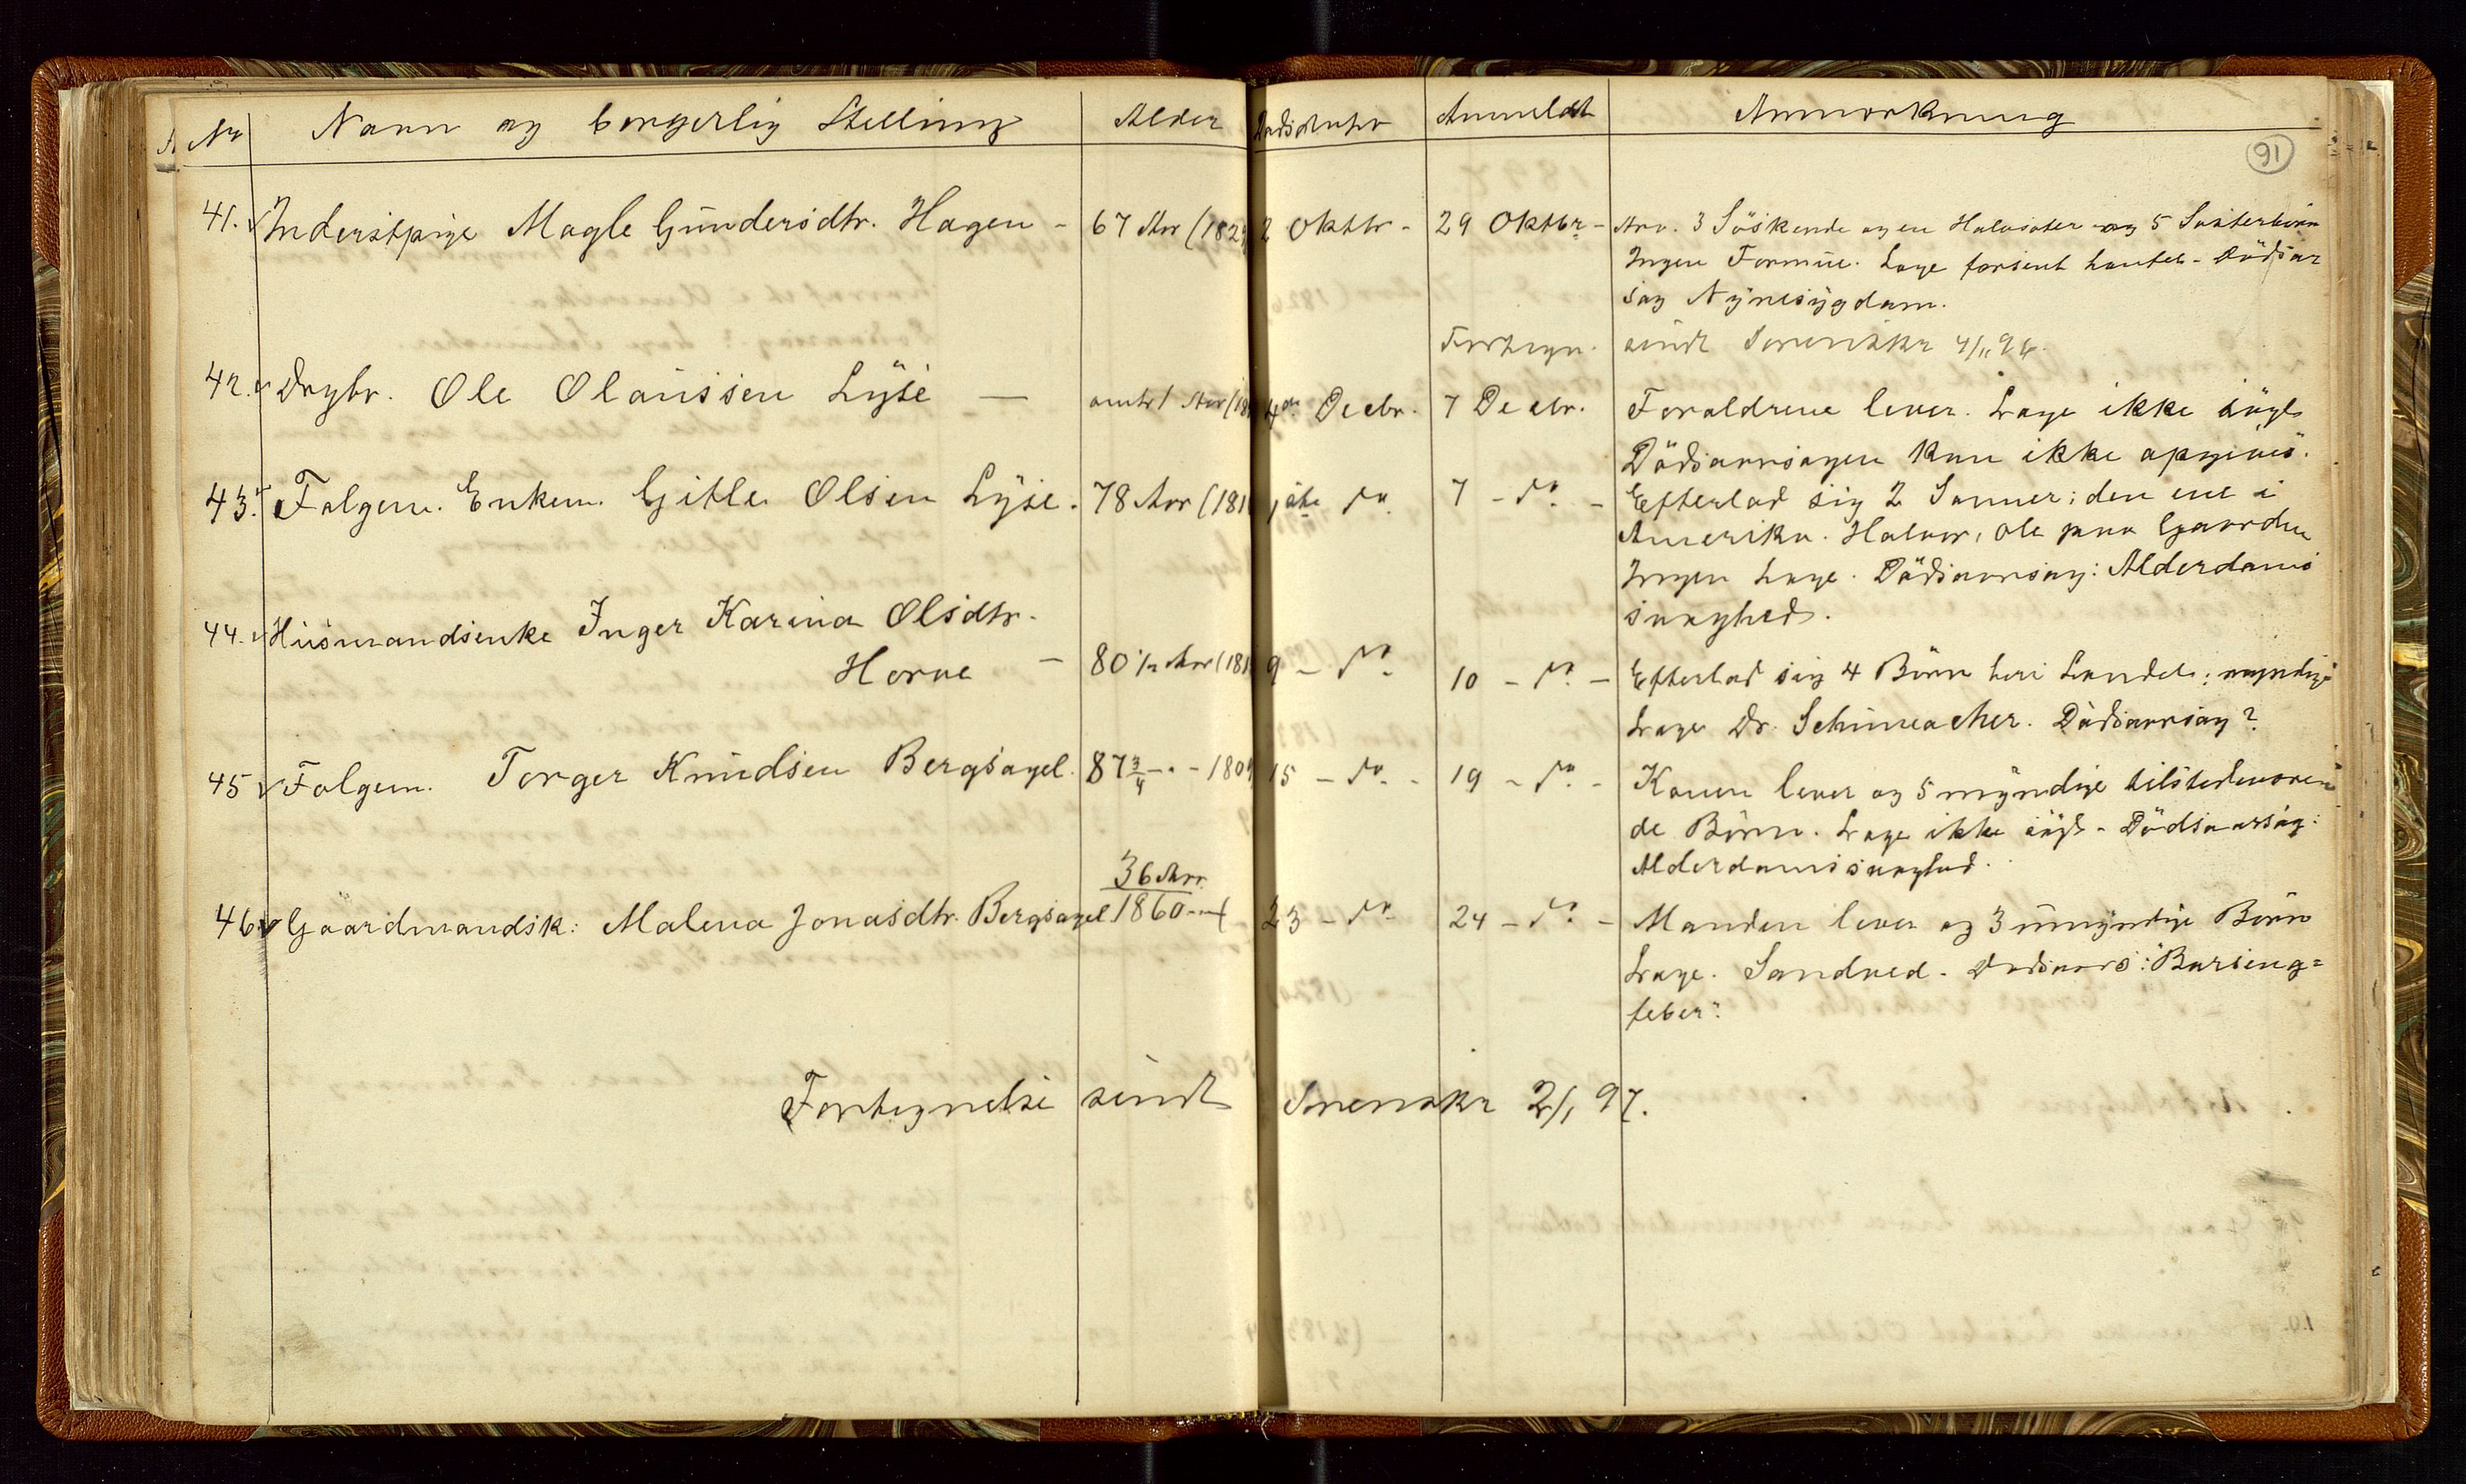 No Navn og borgerlig Stilling Alder Dødsdato Anmeldt Anmærkning
91
41. Inderstpige Magle Gundersdtr. Hagen - 67 Aar (182 2 Oktbr - 29 Oktbr - Arv. 3 Söskende og en Halvsøster og 5 Søsterbörn
Ingen Formue. Læge forsent hentet - Dödsaar
sag Nyresygdom.
Fortegn. sendt Sorenskr 4/11 96.
42. Drgbr. Ole Olaussen Lyse — omtr 1 Aar (18 4de Decbr. 7 Decbr. Forældrene lever. Læge ikke sögt
Dödsaarsagen kan ikke opgives.
43. Folgem. Enkem. Gitle Olsen Lyse. 78 Aar (181 1ste do. 7 - do. - Efterlod sig 2 Sønner; den ene i
Amerika. Halvor, Ole paa Gaarden
Ingen Læge. Dödsaarsag: Alderdoms
svaghed.
44. Husmandsenke Inger Karina Olsdtr.
Horve - 80 1/2 Aar (181 9 - do. 10 - do. - Efterlod sig 4 Börn her i Landet; myndige
Læge Dr. Schumacher. Dödsaarsag?
45 Folgem. Torger Knudsen Bergsagel. 87 3/4 - " - 1809 15 - do. - 19 - do. - Konen lever og 5 myndige tilstedeværen
de Börn. Læge ikke sögt - Dödsaarsag:
Alderdomssvaghed.
46 Gaardmandsk: Malena Jonasdtr. Bergsagel 36 Aar 1860 23 - do. 24 - do. - Manden lever og 3 umyndige Börn
Læge. Sandved - Dødsaars: "Barseng=
feber".
Fortegnelse sendt Sorenskr 2/1 97.